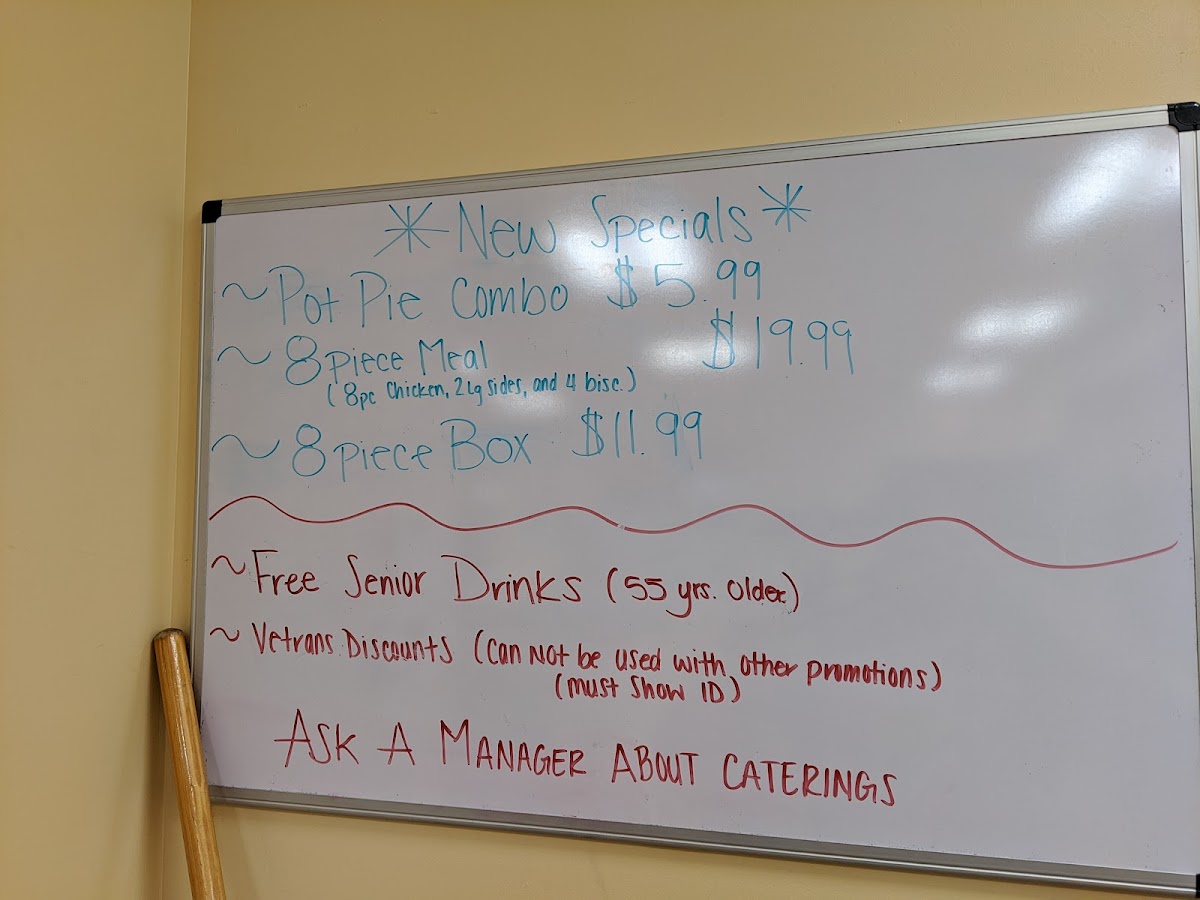 * New Specials *
~ Pot Pie Combo $5.99
~ 8 piece Meal $19.99
(8pc Chicken, 2 Lg sides, and 4 bisc.)
~ 8 piece Box $11.99
~ Free Senior Drinks (55 yrs. older)
~ Vetrans Discounts (Can Not be used with other promotions)
(must show ID)
ASK A MANAGER ABOUT CATERINGS